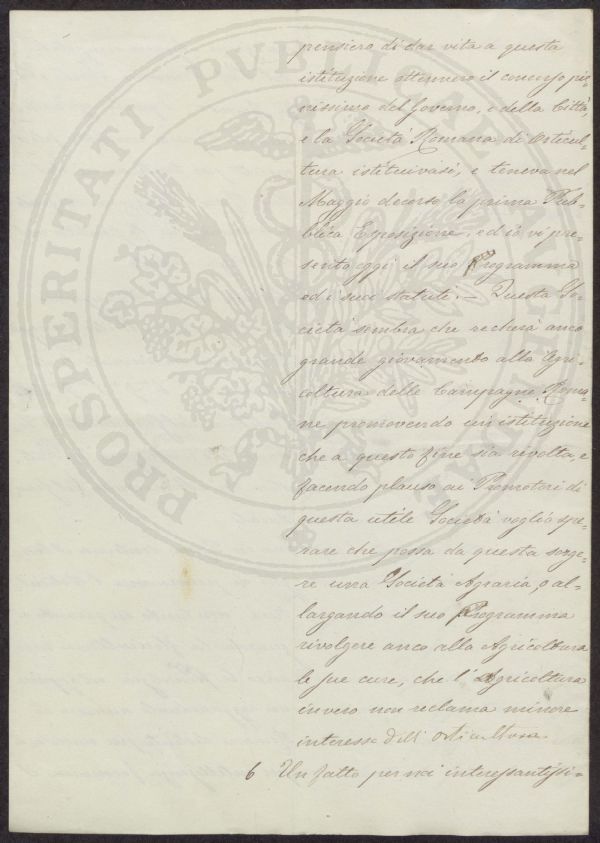 PROSPERITATI PVBLICAE AVGENDAE
pensiero di dar vita a questa
istituzione ottennero il concorso pie-
nissimo del Governo, e della Città,
e la Società Romana di Orticul-
tura istituivasi, e teneva nel
Maggio decorso la prima Pub-
blica Esposizione, ed io vi pre-
sento oggi il suo Programma
ed i suoi statuti. — Questa So-
cietà sembra che recherà anco
grande giovamento alla Agri-
coltura delle Campagne Roma-
ne promovendo un'istituzione
che a questo fine sia rivolta, e
facendo plauso ai Promotori di
questa utile Società voglio spe-
rare che possa da questa sorge-
re una Società Agraria, o al-
largando il suo Programma
rivolgere anco alla Agricoltura
le sue cure, che l'Agricoltura
invero non reclama minore
interesse dell'Orticultura
6 Un fatto per noi interessantissi-